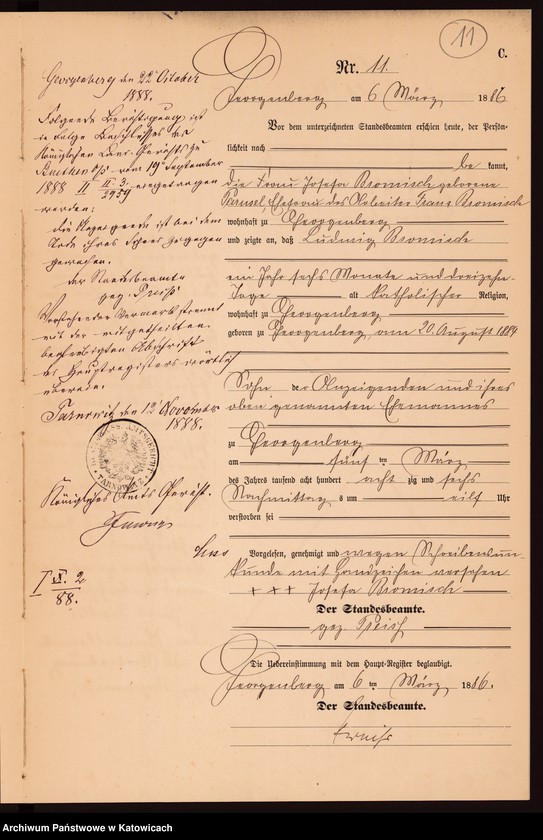 11
C.
Nr. 11.
Georgenberg am 6 März 1886
Vor dem unterzeichneten Standesbeamten erschien heute, der Persön-
lichkeit nach
be kannt,
die Frau Josefa Bromisch geborene
Ehefrau des Franz Bromisch
wohnhaft zu Georgenberg
und zeigte an, daß Ludwig Bromisch
ein Jahr sechs Monate und dreizehn
Tage alt katholischer Religion,
wohnhaft zu Georgenberg
geboren zu Georgenberg, am 20 August 1884
Sohn der Anzeigenden und ihres
oben genannten Ehemannes
zu Georgenberg
am fünf ten März
des Jahres tausend acht hundert acht zig und sechs
Nachmittag s um eilf Uhr
verstorben sei
Vorgelesen, genehmigt und wegen Schreibensun-
kunde mit Handzeichen versehen
+++ Josefa Bromisch
Der Standesbeamte.
gez.
Die Uebereinstimmung mit dem Haupt-Register beglaubigt.
Georgenberg am 6 ten März 1886.
Der Standesbeamte.
Georgenberg den 22 October
1888.
Folgende Berichtigung ist
in Folge Beschlusses des
Königlichen Amts-Gerichts zu
Beuthen O/S vom 19 September
1888 eingetragen
worden:
die Anzeigende ist bei dem
Tode ihres Sohnes zugegen
gewesen.
der Standesbeamte
gez.
Vorstehender Vermerk stimmt
mit der mitgetheilten
beglaubigten Abschrift
des Hauptregisters wörtlich
überein.
Tarnowitz den 12 November
1888.
Königliches Amts-Gericht.
88.
Archiwum Państwowe w Katowicach